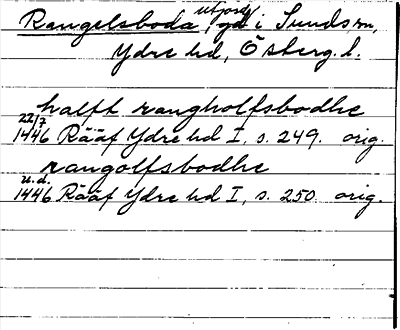 Rangelsboda, utjord, gd i Sunds sn,
Ydre hd, Ösberg. l.
halft rangholfsbodhe
22/7
1446 Rääf Ydre hd I, s. 249. orig.
rangolfsbodhe
u.d.
1446 Rääf Ydre hd I, s. 250. orig.